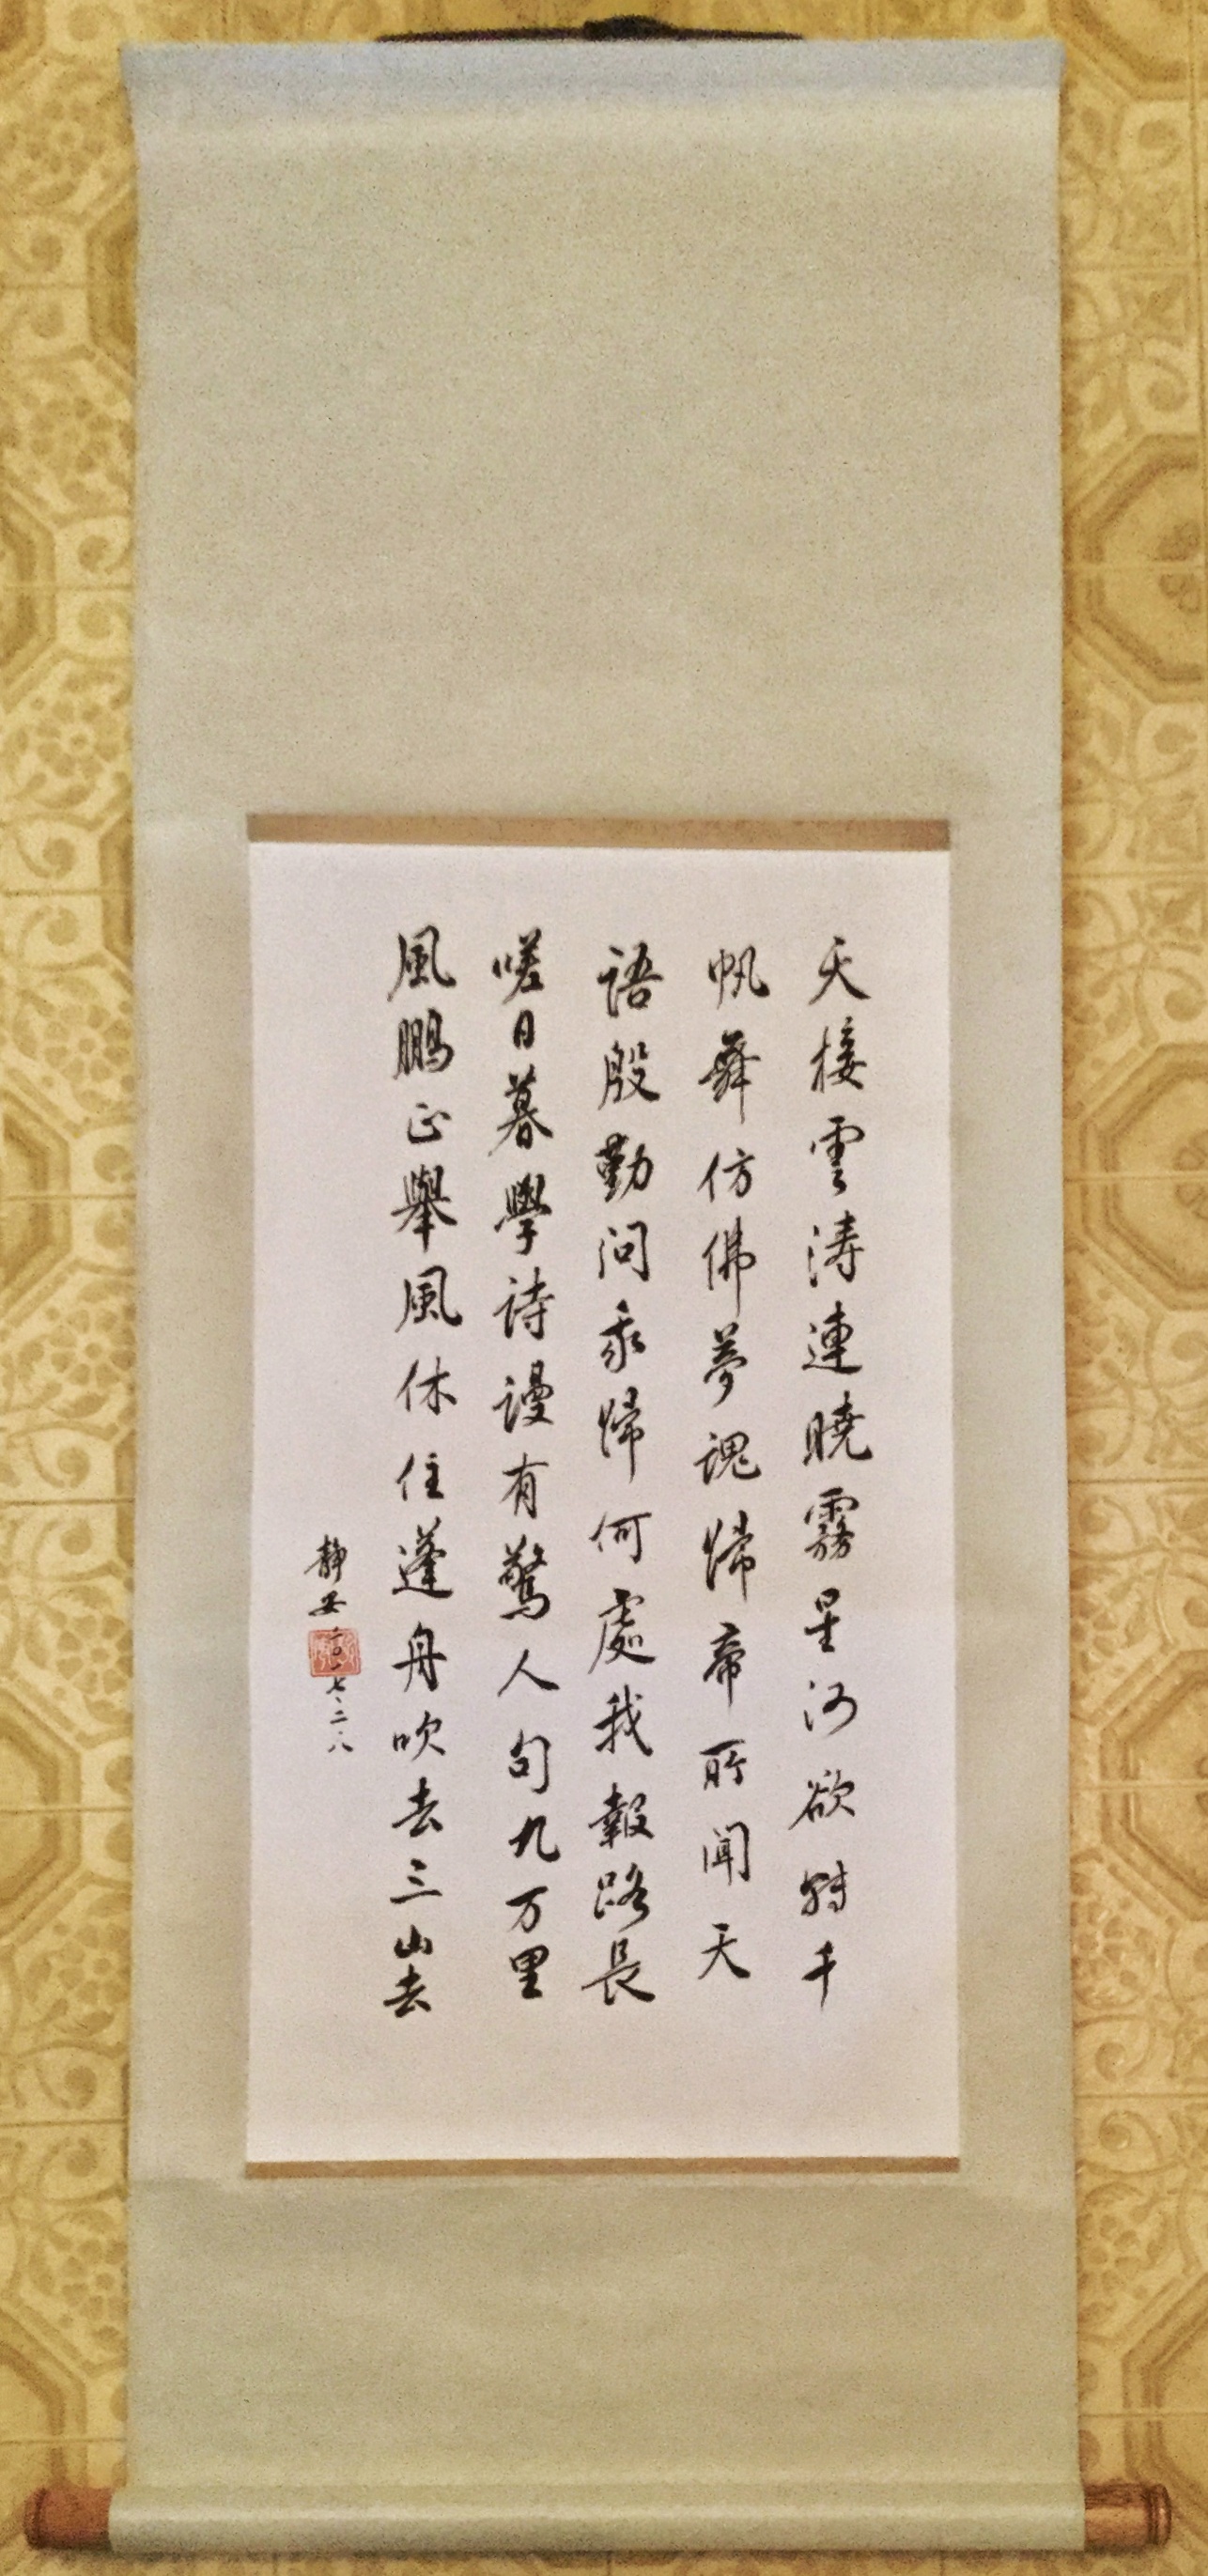 天接雲涛連曉霧星河欲轉千
帆舞仿佛夢魂歸帝所聞天
語殷勤问我歸何處我報路長
嗟日暮學詩謾有驚人句九万里
風鵬正舉風休住蓬舟吹去三山去
静安二〇一七、二、八